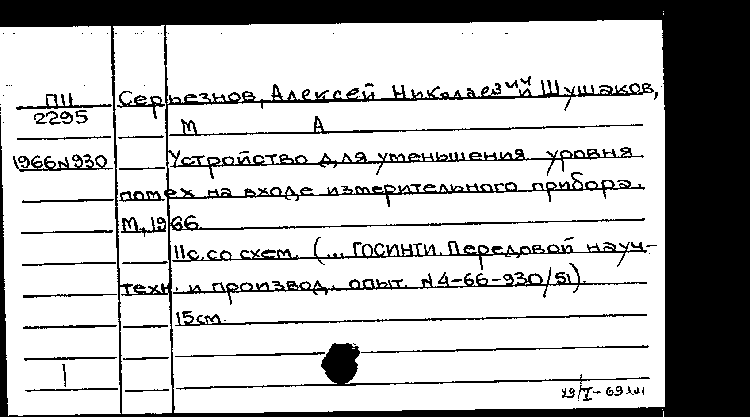 ПII Серьезнов, Алексей Николаевич и Шушаков,
2295
М А
1966N930 Устройство для уменьшения уровня
помех на входе измерительного прибора.
М, 1966.
11с. со схем. (... ГОСИНТИ. Передовой науч-
техн. и производ. опыт. N4-66-930/51).
15см.